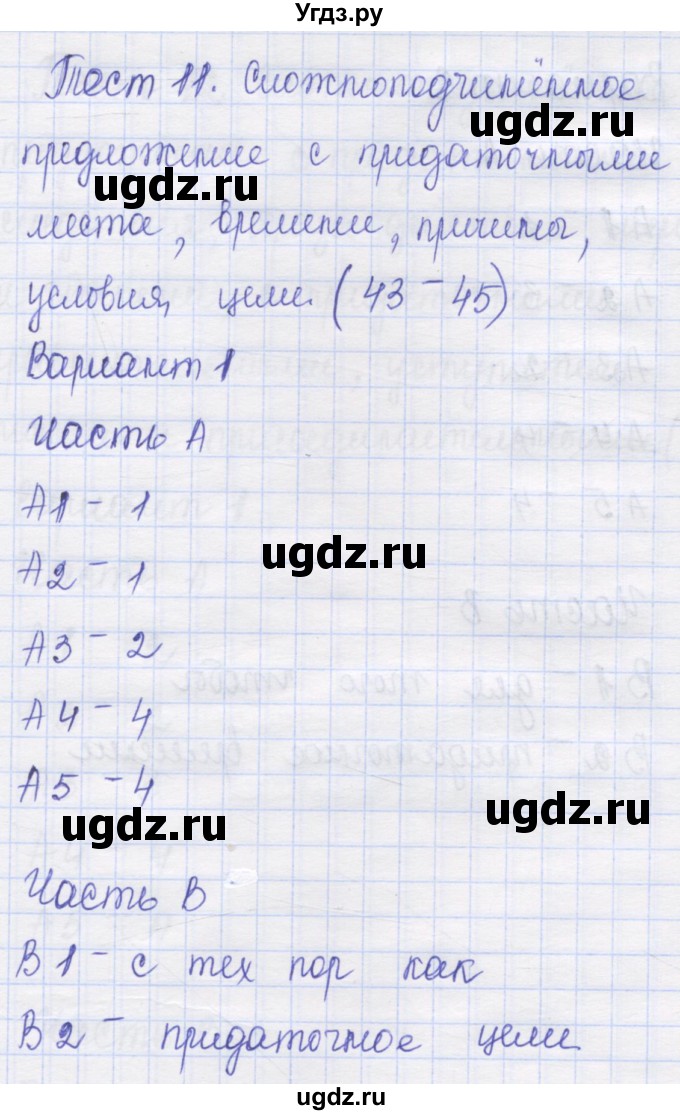 Угдз.ру
Тест 11. Сложноподчинённое
ugdz.ru
предложение с придаточными
ugdz.ru
места, времени, причины,
условия, цели (43 - 45)
Вариант 1
Часть А
А1 - 1
ugdz.ru
А2 - 1
А3 - 2
А4 - 4
А5 - 4
ugdz.ru
ugdz.ru
Часть В
В1 - с тех пор как
В2 - придаточное цели
ugdz.ru